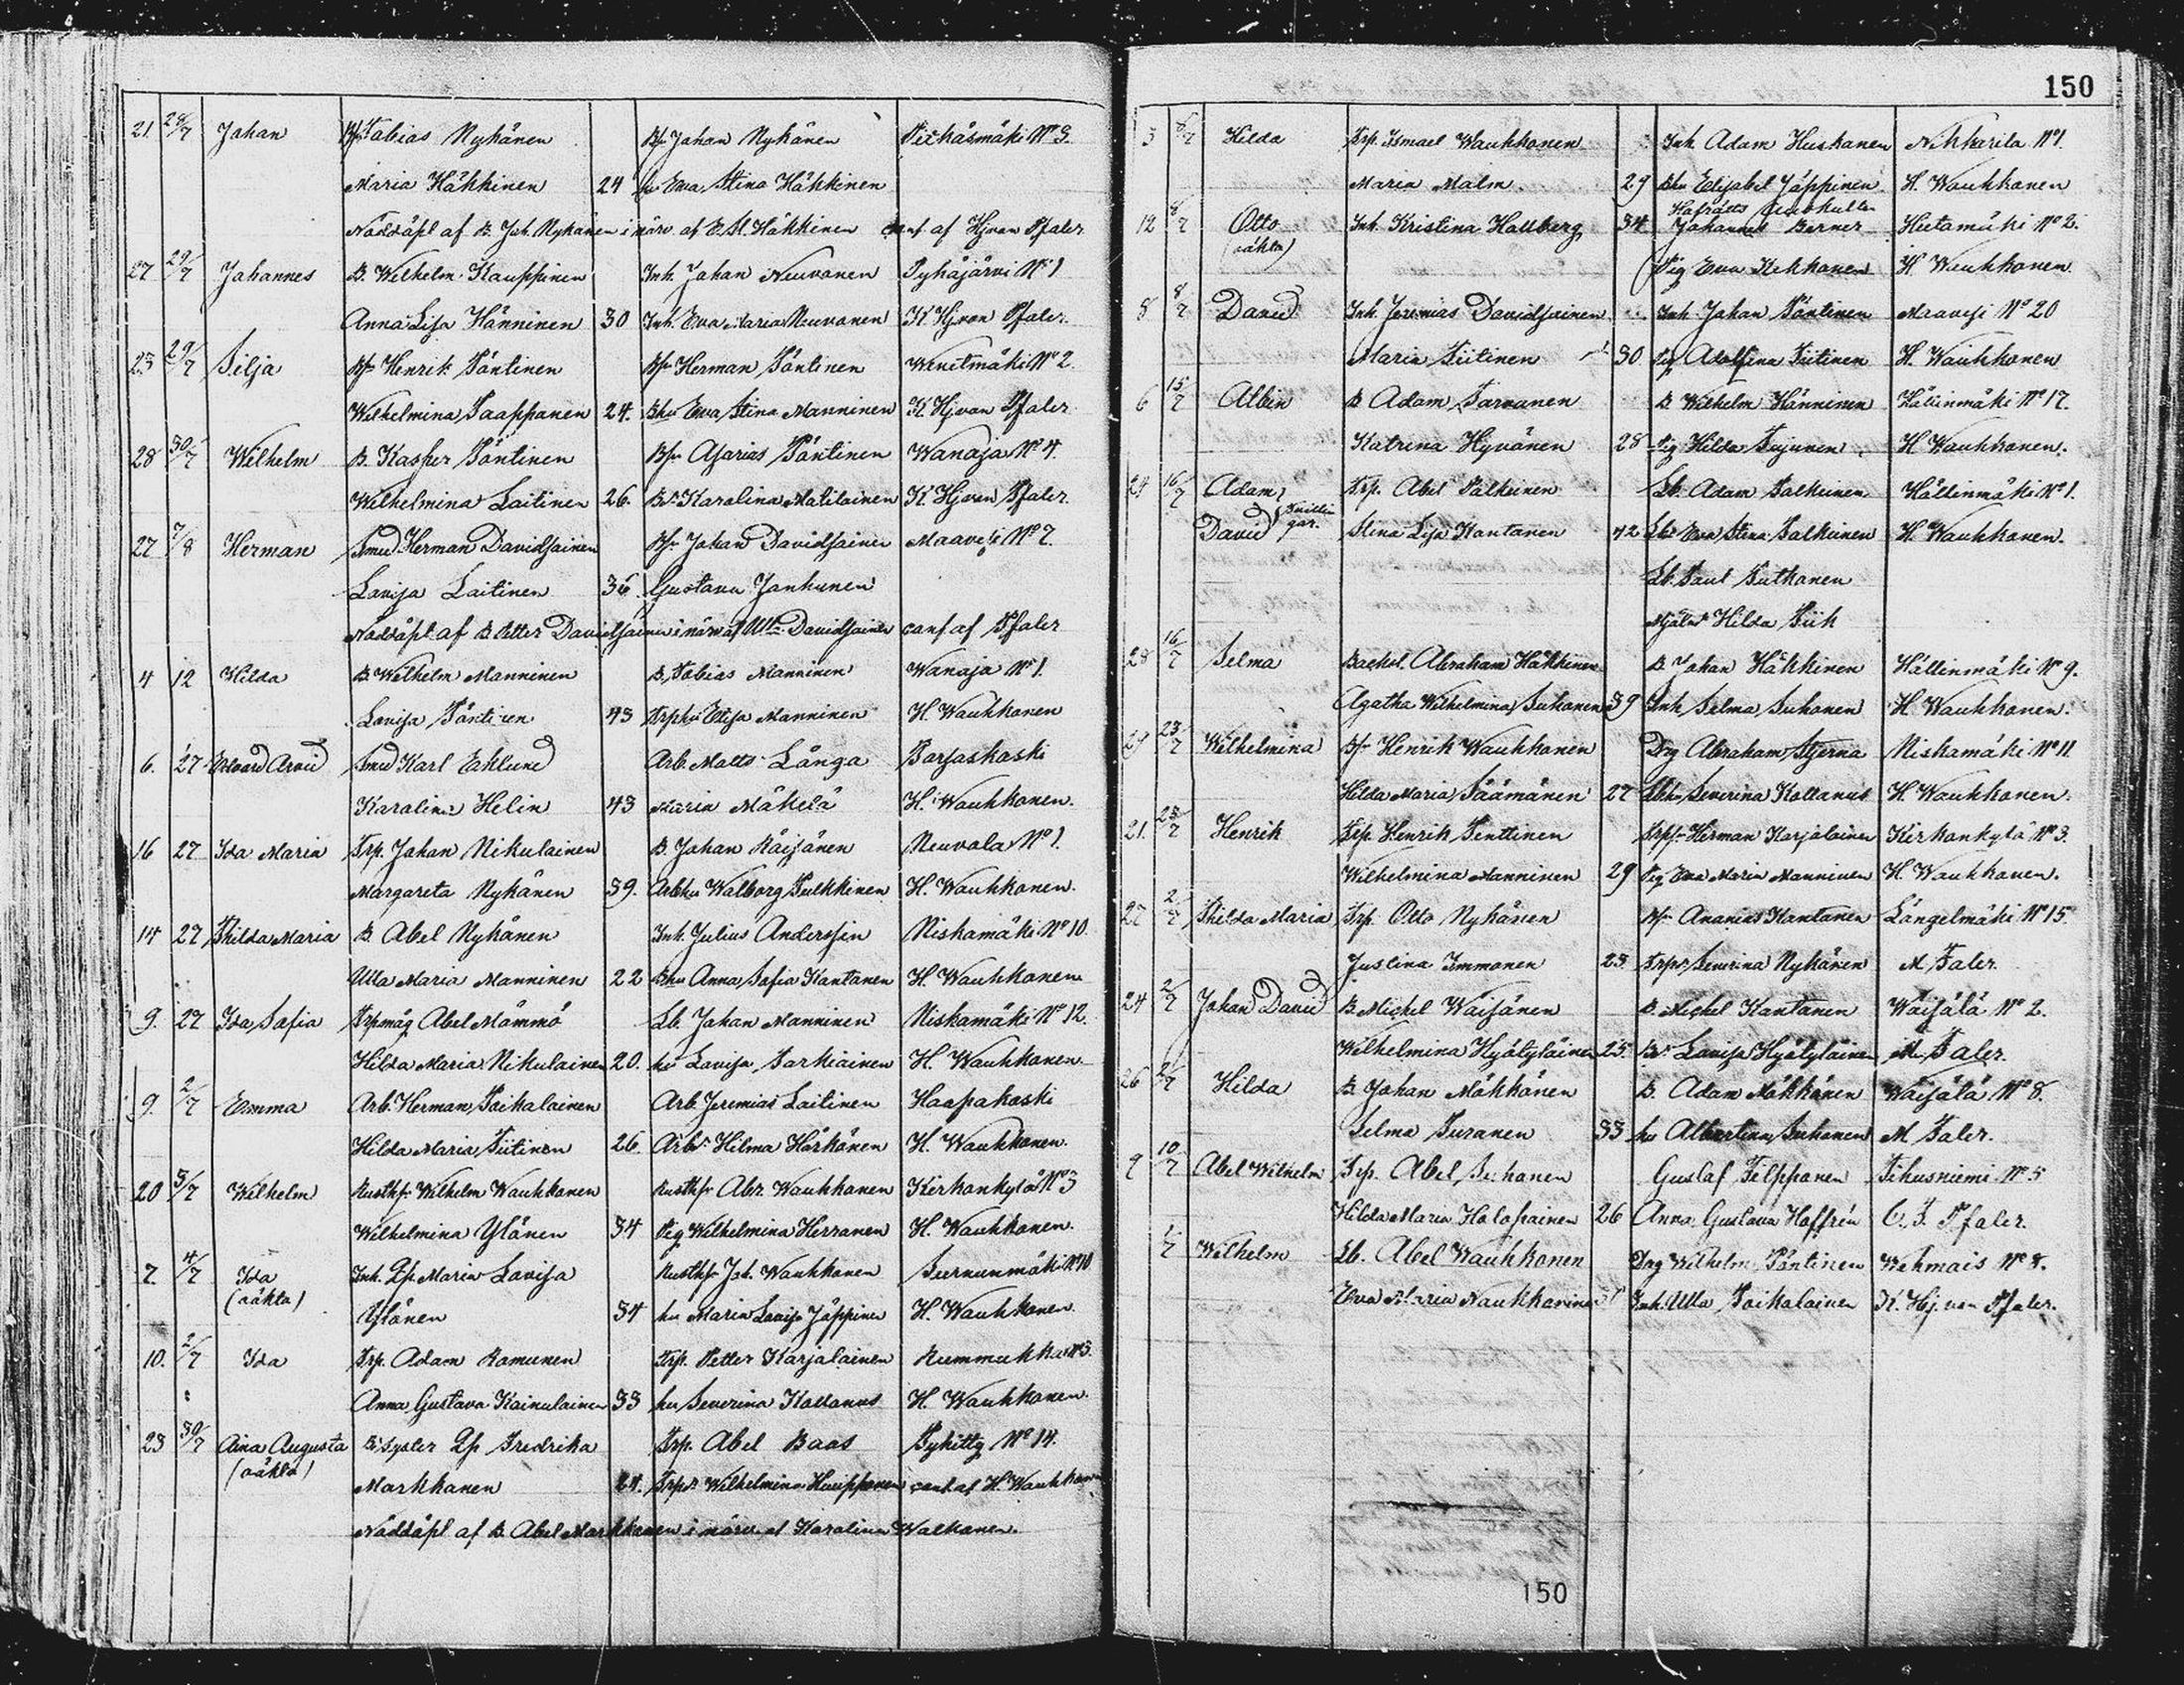 21. 28/7 Johan Bf Tobias Nykänen Bf Johan Nykänen Pitkäsmäki No 3.
Maria Häkkinen 24 hu Eva Stina Häkkinen
Nöddöpt af B. Joh. Nykänen i närv. af E. St. Häkkinen conf af Hj von Pfaler
27 29/7 Johannes B. Wilhelm Kauppinen Inh. Johan Neuvonen Pyhäjärvi No 1
Anna Lisa Hänninen 30 Inh. Eva Maria Neuvonen K Hj von Pfaler.
23 29/7 Silja Bf Henrik Pöntinen Bf Herman Pöntinen Wenetmäki No 2.
Wilhelmina Paappanen 24. Bhu Eva Stina Manninen K Hj von Pfaler
28 30/7 Wilhelm B. Kasper Pöntinen Bf Asarias Pöntinen Wanaja No 4.
Wilhelmina Laitinen 26. Bd Karolina Matilainen K Hj von Pfaler.
27 7/8 Herman Smed Herman Davidsainen Bf Johan Davidsainen Maavesi No 7.
Lovisa Laitinen 36. Gustava Janhunen
Nöddöpt af B Petter Davidsainen i närv af Ulla Davidsainen conf af Pfaler
4 12 Hilda B. Wilhelm Manninen B. Tobias Manninen Wanaja No 1.
Lovisa Pöntinen 43 Trphu Elisa Manninen H. Wauhkonen
6. 27 Edvard Arvid Smed Karl Eklund Arb. Matts Långa Warsaskoski
Karolina Helin 43 Maria Mäkelä H. Wauhkonen.
16 27 Ida Maria Trp. Johan Nikulainen B. Johan Räisänen Neuvola No 1.
Margareta Nykänen 39. Arbhu Walborg Pulkkinen H. Wauhkonen.
14 27 Thilda Maria B. Abel Nykänen Inh. Julius Andersin Niskamäki No 10
Ulla Maria Manninen 22 Bhu Anna Sofia Kantanen H. Wauhkonen
9. 27 Ida Sofia Trpmåg Abel Mömmö Lb. Johan Manninen Niskamäki No 12.
Hilda Maria Nikulainen 20. hu Lovisa Tarkiainen H. Wauhkonen
9. 2/7 Emma Arb. Herman Paikalainen Arb. Jeremias Laitinen Haapakoski
Hilda Maria Tiitinen 26. Arbd Hilma Härkönen H. Wauhkonen.
20 3/7 Wilhelm Rusthf Wilhelm Wauhkonen Rusthf Abr. Wauhkonen Kirkonkylä No 3
Wilhelmina Ylönen 34 Pig Wilhelmina Hirranen H. Wauhkonen.
7. 4/7 Ida Inh. Qp Maria Lovisa Rusthf Joh. Wauhkonen Surnunmäki No 10
(oäkta) Ylönen 34 hu Maria Lovisa Jäppinen H. Wauhkonen.
10. 2/7 Ida Trp. Adam Ramunen Trp. Petter Karjalainen Rummukka No 3.
Anna Gustava Kainulainen 33 hu Severina Kollanus H. Wauhkonen
23 30/7 Aina Augusta B. Syster Qp Fredrika Trp. Abel Baas Pyhitty No 14.
(oäkta) Markkanen 24. Trpd Wilhelmina Huupponen conf af H. Wauhkonen
Nöddöpt af B. Abel Markkanen i närv. af Karolina Walkonen.
150
3 6/7 Hilda Trp. Ismael Wauhkonen Inh. Adam Huskanen Nikkarila No 1.
Maria Malm. 29 Bhu Elisabet Jäppinen H. Wauhkonen
Hofrätts Auskultn
12 8/7 Otto Inh. Kristina Hallberg 34 Johannes Berner Hietamäki No 2.
(oäkta) Pig Eva Kekkonen H Wauhkonen.
8 8/7 David Inh. Jeremias Davidsainen Inh. Johan Pöntinen Maavesi No 20
Maria Tiitinen 30 Pig Adolfina Tiitinen H. Wauhkonen
6 15/7 Albin B Adam Tarvanen B Wilhelm Hänninen Hällinmäki No 17.
Katrina Hyvönen 28 Pig Hilda Tujunen H Wauhkonen.
24 16/7 Adam Trp. Abel Valkeinen Lb. Adam Valkeinen Hällinmäki No 1.
David Tvillingar. Stina Lisa Kantanen 42 Lbd Eva Stina Valkeinen H. Wauhkonen.
Lb. Paul Puttonen
Mjölnd Hilda Piik
28 16/7 Selma Backst. Abraham Häkkinen B Johan Häkkinen Hällinmäki No 9.
Agatha Wilhelmina Suhonen 39 Inh. Selma Suhonen H Wauhkonen.
21 23/7 Wilhelmina Bf Henrik Wauhkonen Drg Abraham Stjerna Niskamäki No 11
Hilda Maria Säämänen 27 Lbhu Severina Kollanus H. Wauhkonen.
21. 23/7 Henrik Trp. Henrik Penttinen Trpf Herman Karjalainen Kirkonkylä No 3.
Wilhelmina Manninen 29 Pig Eva Maria Manninen H. Wauhkonen.
27 2/7 Thilda Maria Trp. Otto Nykänen Bf Ananias Kantanen Längelmäki No 15.
Justina Immonen 23. Trpd Severina Nykänen M Faler.
24 2/7 Johan David B. Mickel Waisänen B. Mickel Kantanen Waisälä No 2.
Wilhelmina Hyötyläinen 25. Bd Lovisa Hyötyläinen M Faler.
26 2/7 Hilda B. Johan Mökkönen B. Adam Mökkönen Waisälä No 8.
Selma Turanen 33 hu Albertina Suhonen M Faler.
9 10/7 Abel Wilhelm Trp. Abel Suhonen Gustaf Filpponen Tihusniemi No 5
Hilda Maria Holopainen 26 Anna Gustava Hoffrén O. F. Pfaler.
1/7 Wilhelm Lb. Abel Wauhkonen Drg Wilhelm Pöntinen Wehmais No 8.
Eva Maria Naukkarinen Inh. Ulla Paikalainen K. Hj. von Pfaler.
150